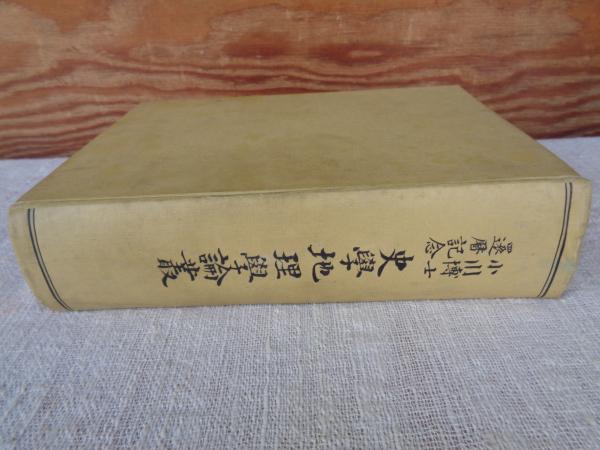 小川博士
還暦記念
史學地理學論叢